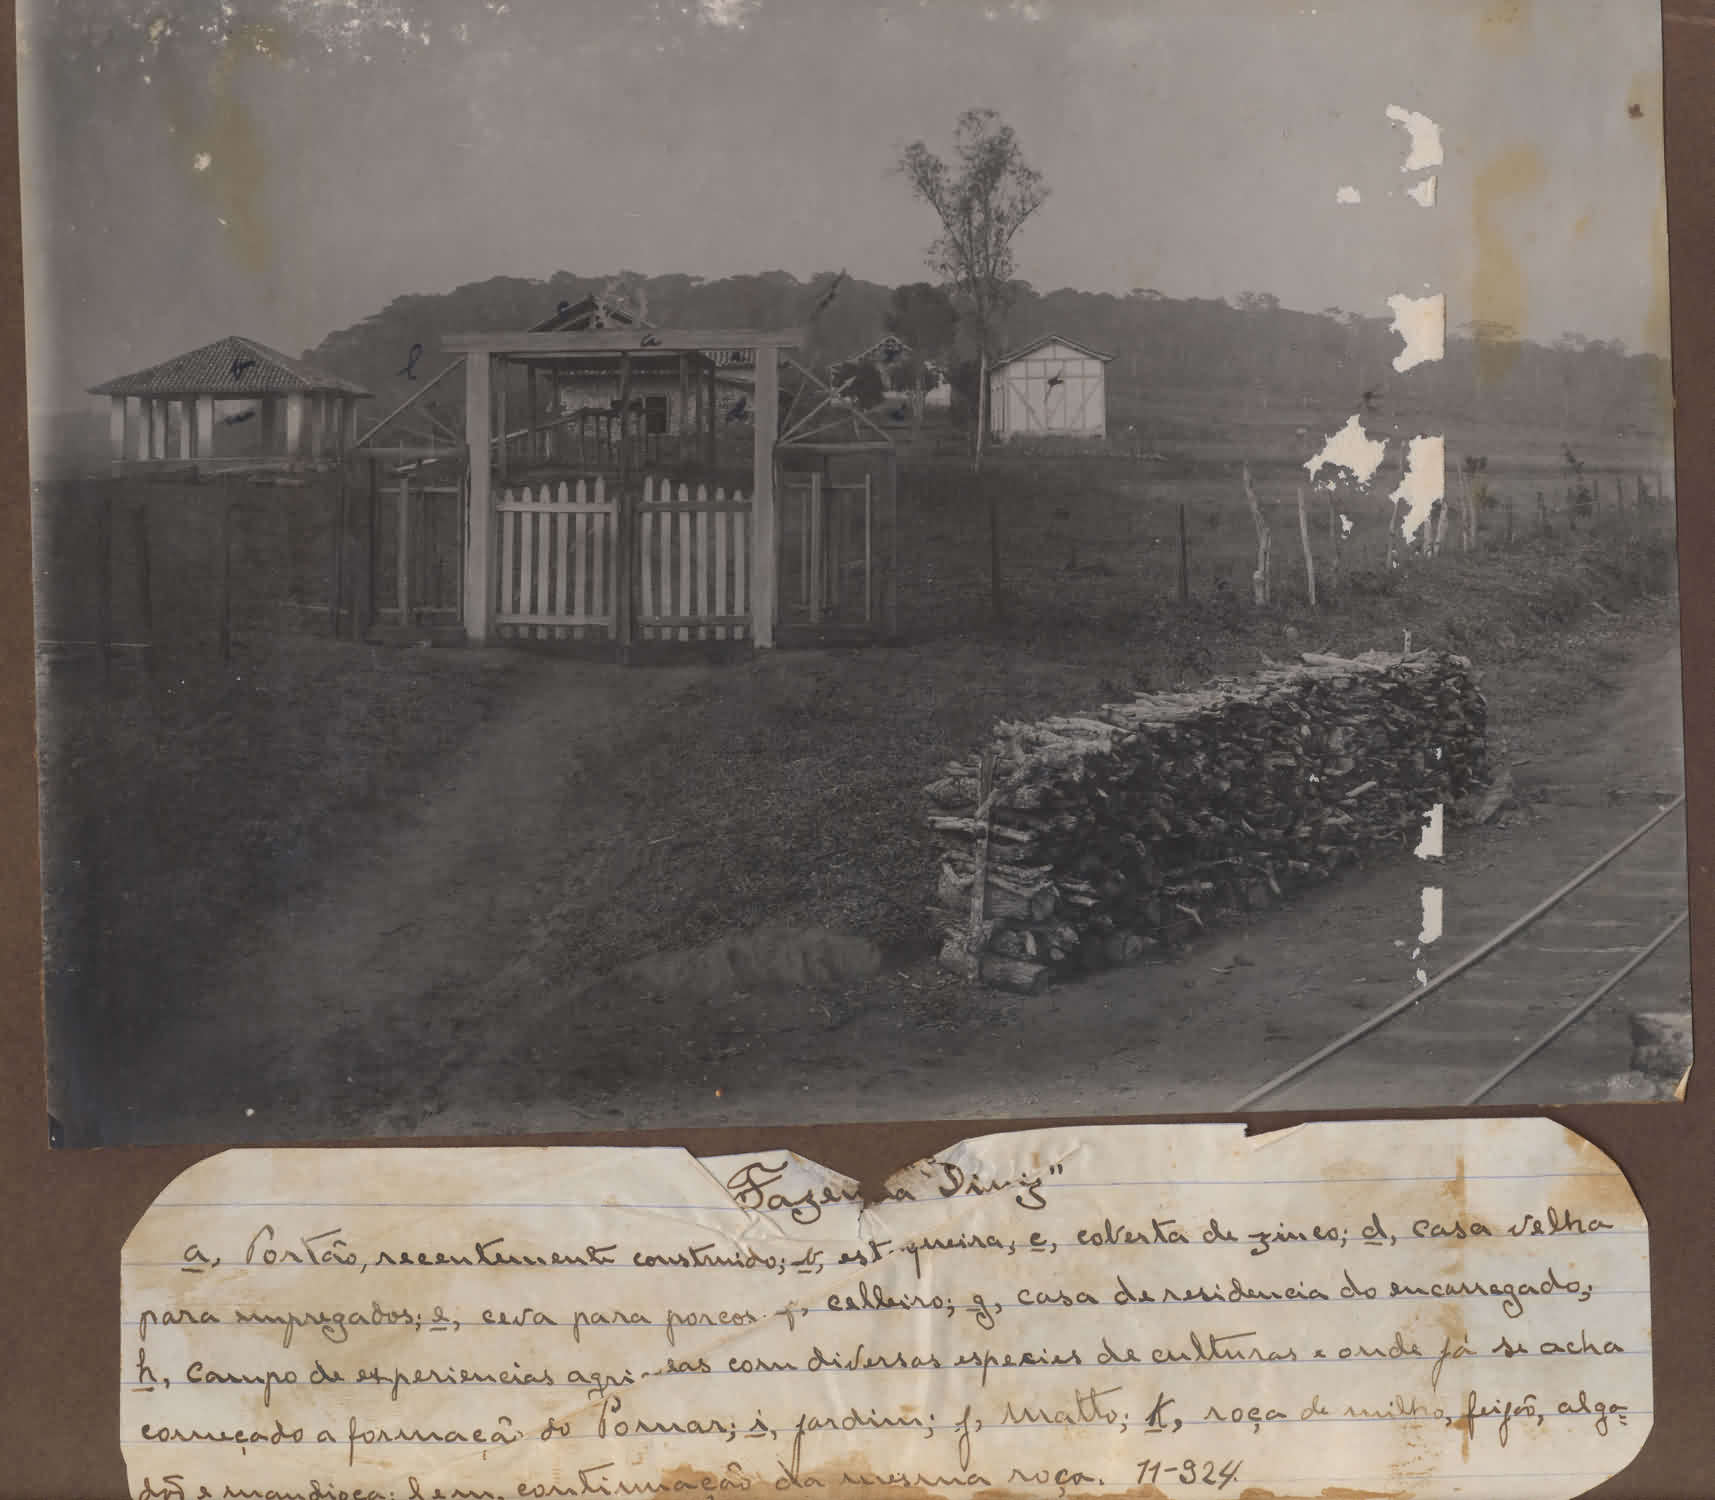 a
l
Fazenda "Diniz"
a, Portão, recentemente construido; b, est queira, c, coberta de zinco; d, casa velha
para empregados; e, ceva para porcos f, celleiro; g, casa de residencia do encarregado;
h, campo de experiencias agri eas com diversas especies de culturas e onde já se acha
começado a formação do Pomar; i, jardim; j, Matto; K, roça de milho, feijão, algo-
dão e mandioca; l em continuação da mesma roça. 11-924.